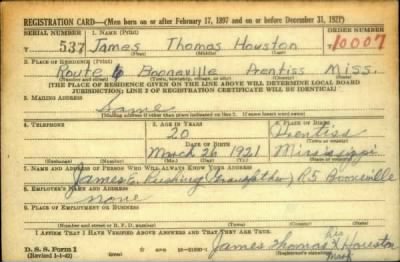 REGISTRATION CARD—(Men born on or after February 17, 1897 and on or before December 31, 1921)
SERIAL NUMBER 1. NAME (Print) ORDER NUMBER
T 537 James Thomas Houston 10007
(First) (Middle) (Last)
2. PLACE OF RESIDENCE (Print)
Route 6 Booneville Prentiss Miss.
(Number and street) (Town, township, village, or city) (County) (State)
[THE PLACE OF RESIDENCE GIVEN ON THE LINE ABOVE WILL DETERMINE LOCAL BOARD
JURISDICTION; LINE 2 OF REGISTRATION CERTIFICATE WILL BE IDENTICAL]
3. MAILING ADDRESS
Same
[Mailing address if other than place indicated on line 2. If same insert word same]
4. TELEPHONE 5. AGE IN YEARS 6. PLACE OF BIRTH
20 Prentiss
DATE OF BIRTH (Town or county)
March 26 1921 Mississippi
(Exchange) (Number) (Mo.) (Day) (Yr.) (State or country)
7. NAME AND ADDRESS OF PERSON WHO WILL ALWAYS KNOW YOUR ADDRESS
James R5 Booneville
8. EMPLOYER'S NAME AND ADDRESS
None
9. PLACE OF EMPLOYMENT OR BUSINESS
(Number and street or R. F. D. number) (Town) (County) (State)
I AFFIRM THAT I HAVE VERIFIED ABOVE ANSWERS AND THAT THEY ARE TRUE.
D. S. S. Form 1
(Revised 1-1-42) James Thomas X Houston
His
Mark